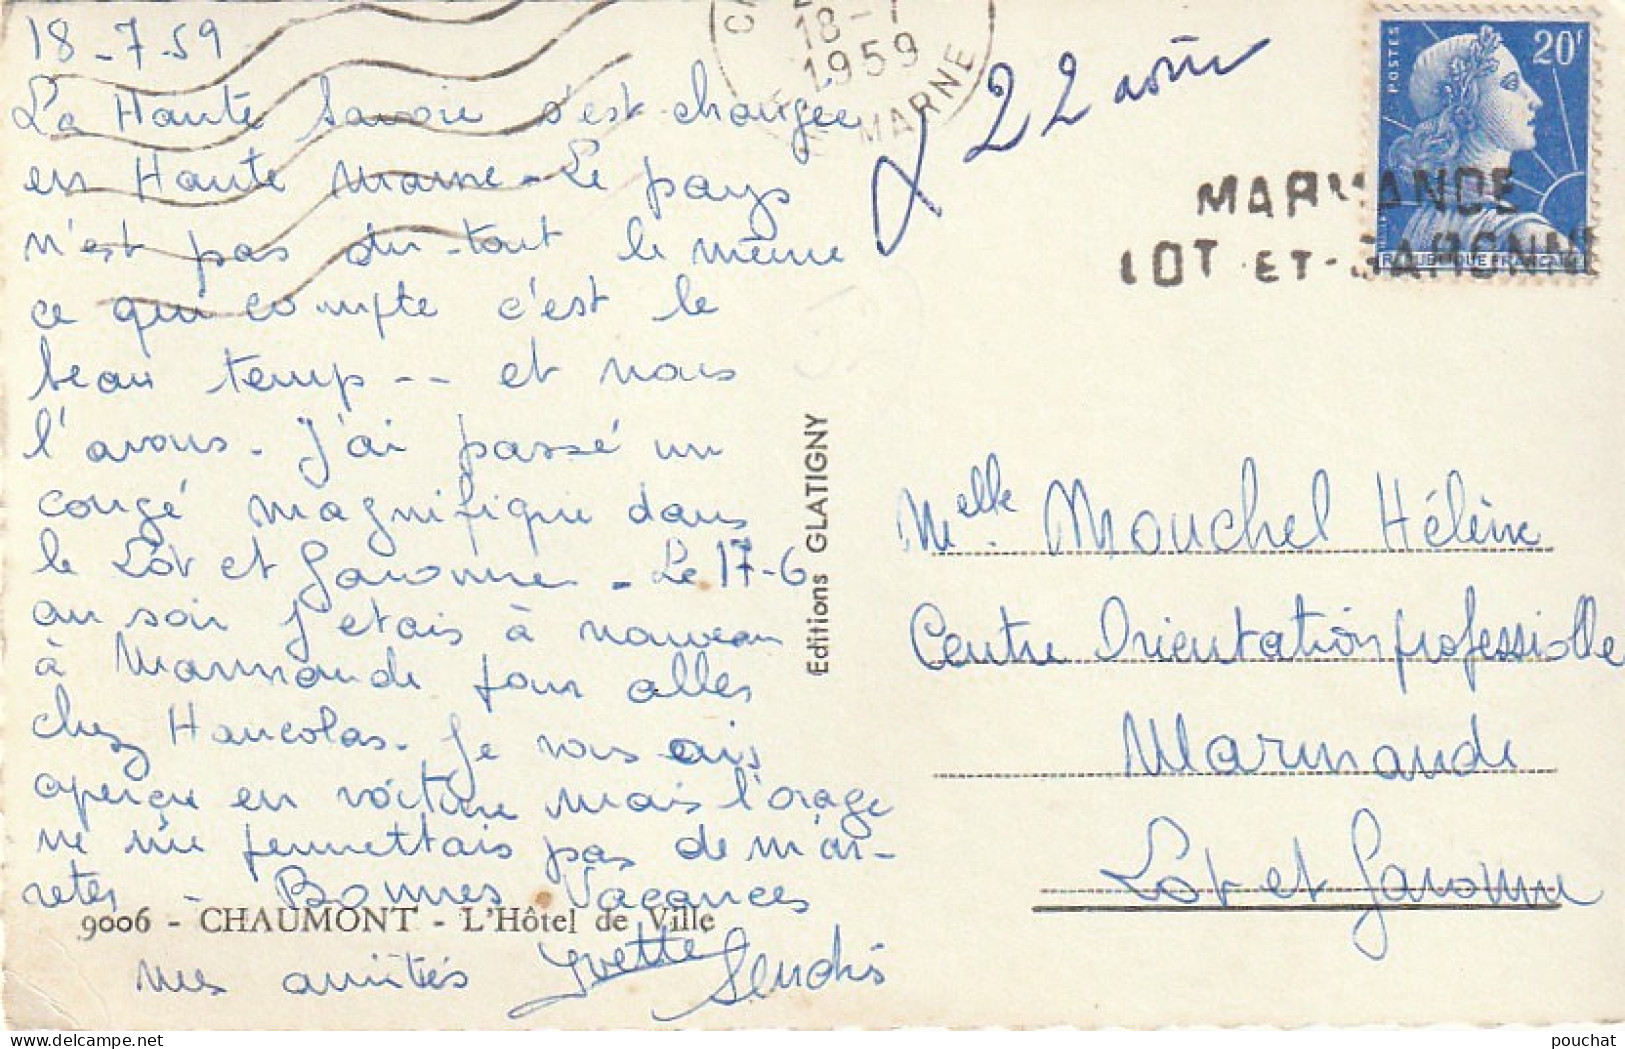 18-7-59
La Haute Savoie s'est changée
en Haute Marne - Le pays
n'est pas du tout le même
ce qui compte c'est le
beau temps -- et nous
l'avons. J'ai passé un
congé magnifique dans
le Lot et Garonne - Le 17-6
au soir j'etais à nouveau
à Marmande pour aller
chez Haucolas. Je vous ais
aperçue en voiture mais l'orage
ne me permettais pas de m'ar-
reter - Bonnes Vacances
9006 - CHAUMONT - L'Hôtel de Ville
mes amitiés Yvette
18-7
1959
MARNE
22 août
POSTES
20F
RÉPUBLIQUE FRANÇAISE
MARMANDE
LOT-ET-GARONNE
Editions GLATIGNY
Melle. Mouchel Hélène
Centre Orientation professiolle
Marmande
Lot et Garonne
pouchat